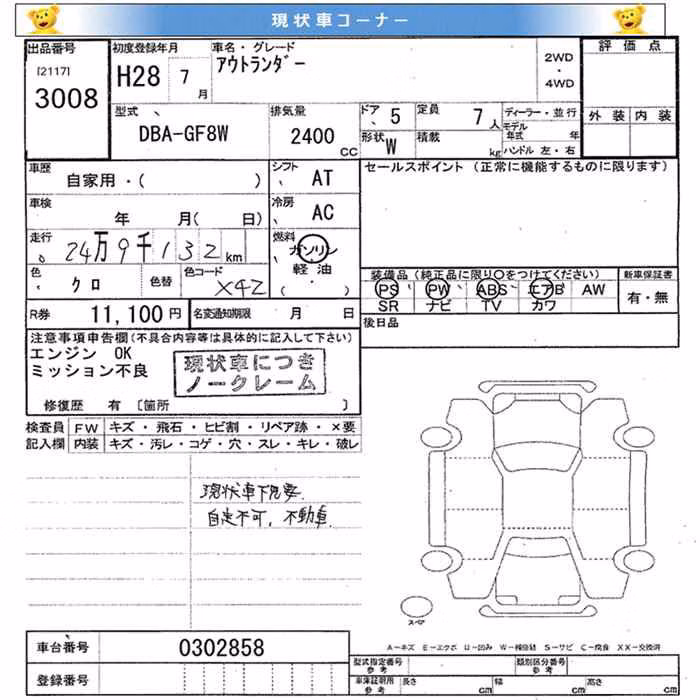 現状車コーナー
出品番号
[2117]
3008
初度登録年月
H28 7 月
車名・グレード
アウトランダー
2WD
・
4WD
評価点
外装 内装
型式
DBA-GF8W
排気量
2400 CC
ドア 5
形状 W
定員 7 人
積載 kg
ディーラー・並行
モデル年式 年
ハンドル 左・右
車歴
自家用・( )
シフト AT
セールスポイント (正常に機能するものに限ります)
車検
年 月( 日)
冷房 AC
走行
24万9千132 km
燃料
ガソリン
軽油
・
色 クロ
色替
色コード X42
装備品(純正品に限り○をつけてください)
PS PW ABS エアB AW
SR ナビ TV カワ
新車保証書
有・無
R券 11,100 円
名変通知期限 月 日
後日品
注意事項申告欄(不具合内容等は具体的に記入して下さい)
エンジン OK
ミッション不良
現状車につき
ノークレーム
修復歴 有 [箇所 ]
検査員 FW キズ・飛石・ヒビ割・リペア跡・×要
記入欄 内装 キズ・汚レ・コゲ・穴・スレ・キレ・破レ
現状車下見要
自走不可, 不動車
スペア
A-キズ E-エクボ U-凹み W-補修跡 S-サビ C-腐食 XX-交換済
車台番号 0302858
登録番号
型式指定番号 参考
類別区分番号 参考
車庫証明用 参考 長さ cm 幅 cm 高さ cm